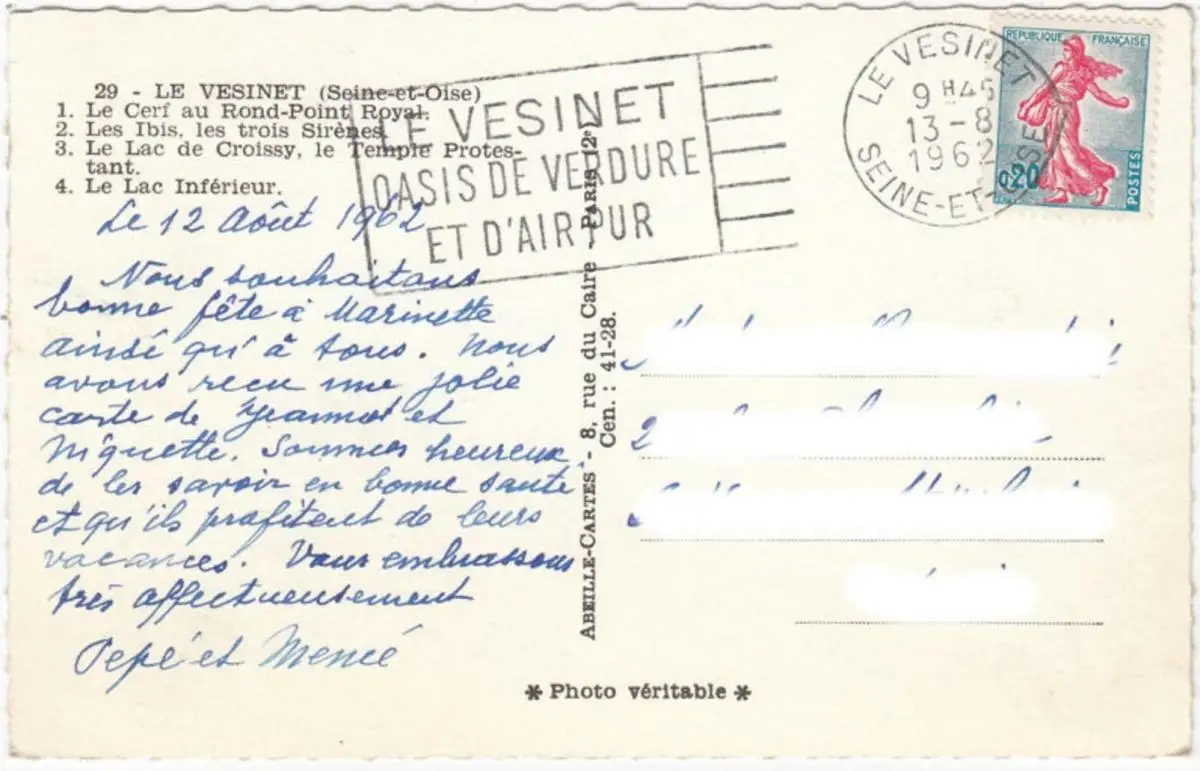 29 - LE VESINET (Seine-et-Oise)
1. Le Cerf au Rond-Point Royal.
2. Les Ibis, les trois Sirènes
3. Le Lac de Croissy, le Temple Protes-
tant.
4. Le Lac Inférieur.
LE VESINET
OASIS DE VERDURE
ET D'AIR PUR
LE VESINET
9 H45
13-8
1962
SEINE-ET-OISE
REPUBLIQUE FRANÇAISE
0,20
POSTES
Le 12 Août 1962
Nous souhaitons
bonne fête à Marinette
ainsi qu'à tous. Nous
avons recu une jolie
carte de Jeannot et
Niquette. Sommes heureux
de les savoir en bonne santé
et qu'ils profitent de leurs
vacances. Vous embrassons
très affectueusement
Pepé et Memé
ABEILLE-CARTES - 8, rue du Caire - PARIS 2e
Cen. : 41-28.
* Photo véritable *